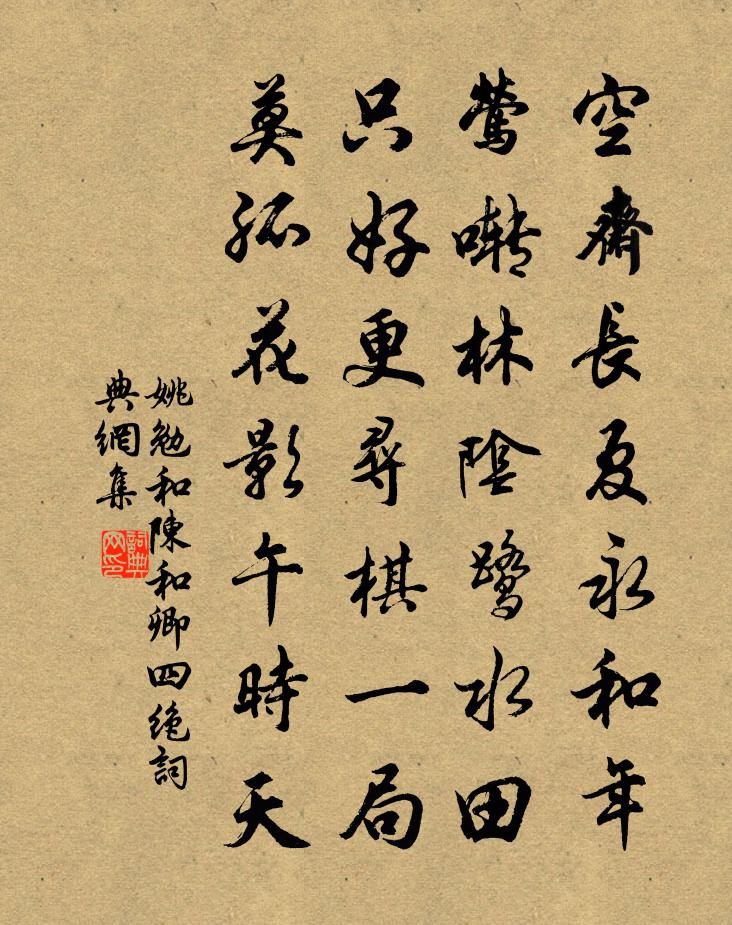 空齋長夏永和年
鶯囀林陰鷺水田
只好更尋棋一局
莫孤花影午時天
姚勉和陳和卿四絶詞
典網集
詞典
网印